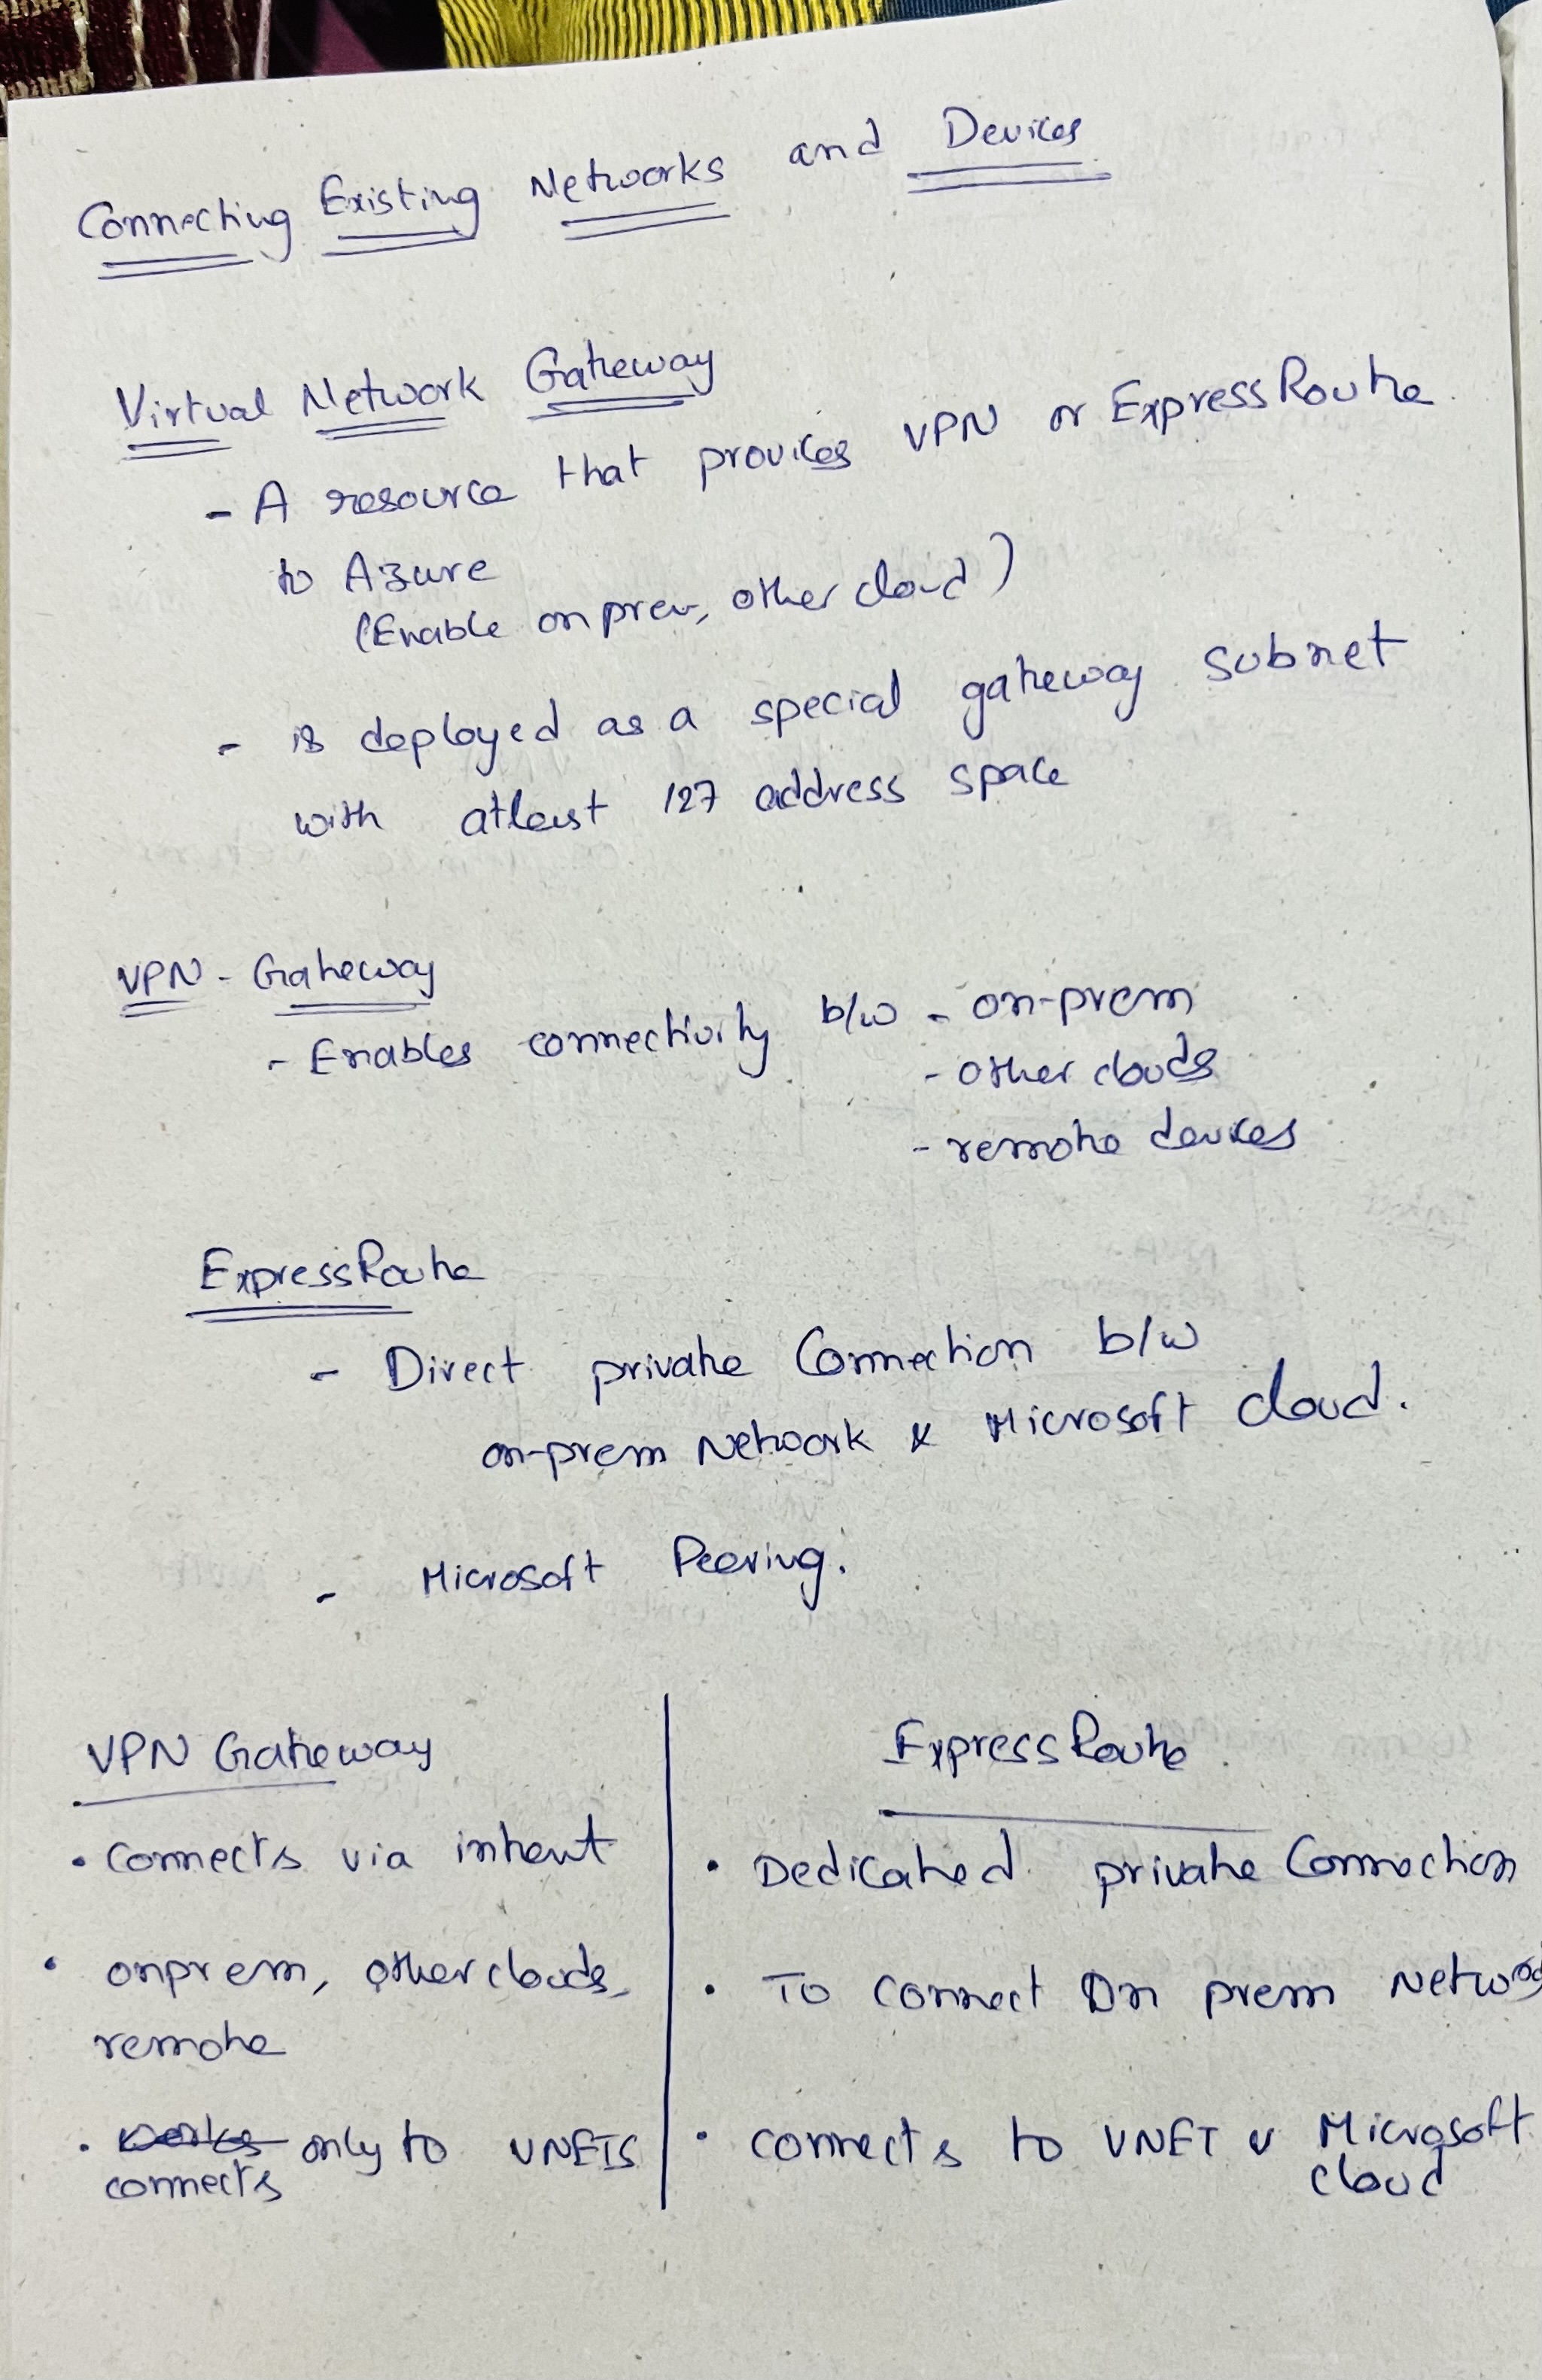 Connecting Existing Networks and Devices
Virtual Network Gateway
- A resource that provices VPN or ExpressRoute
to Azure
(Enable onprem, other cloud)
- is deployed as a special gateway subnet
with atleast /27 address space
VPN - Gateway
- Enables connectivity b/w - on-prem
- other clouds
- remote devices
ExpressRoute
- Direct private Connection b/w
on-prem Network & Microsoft cloud.
- Microsoft Peering.
VPN Gateway
• Connects via internt
• onprem, other clouds,
remote
• works only to VNETS
connects
ExpressRoute
• Dedicated private Connection
• To connect On prem Network
• connects to VNET & Microsoft
cloud